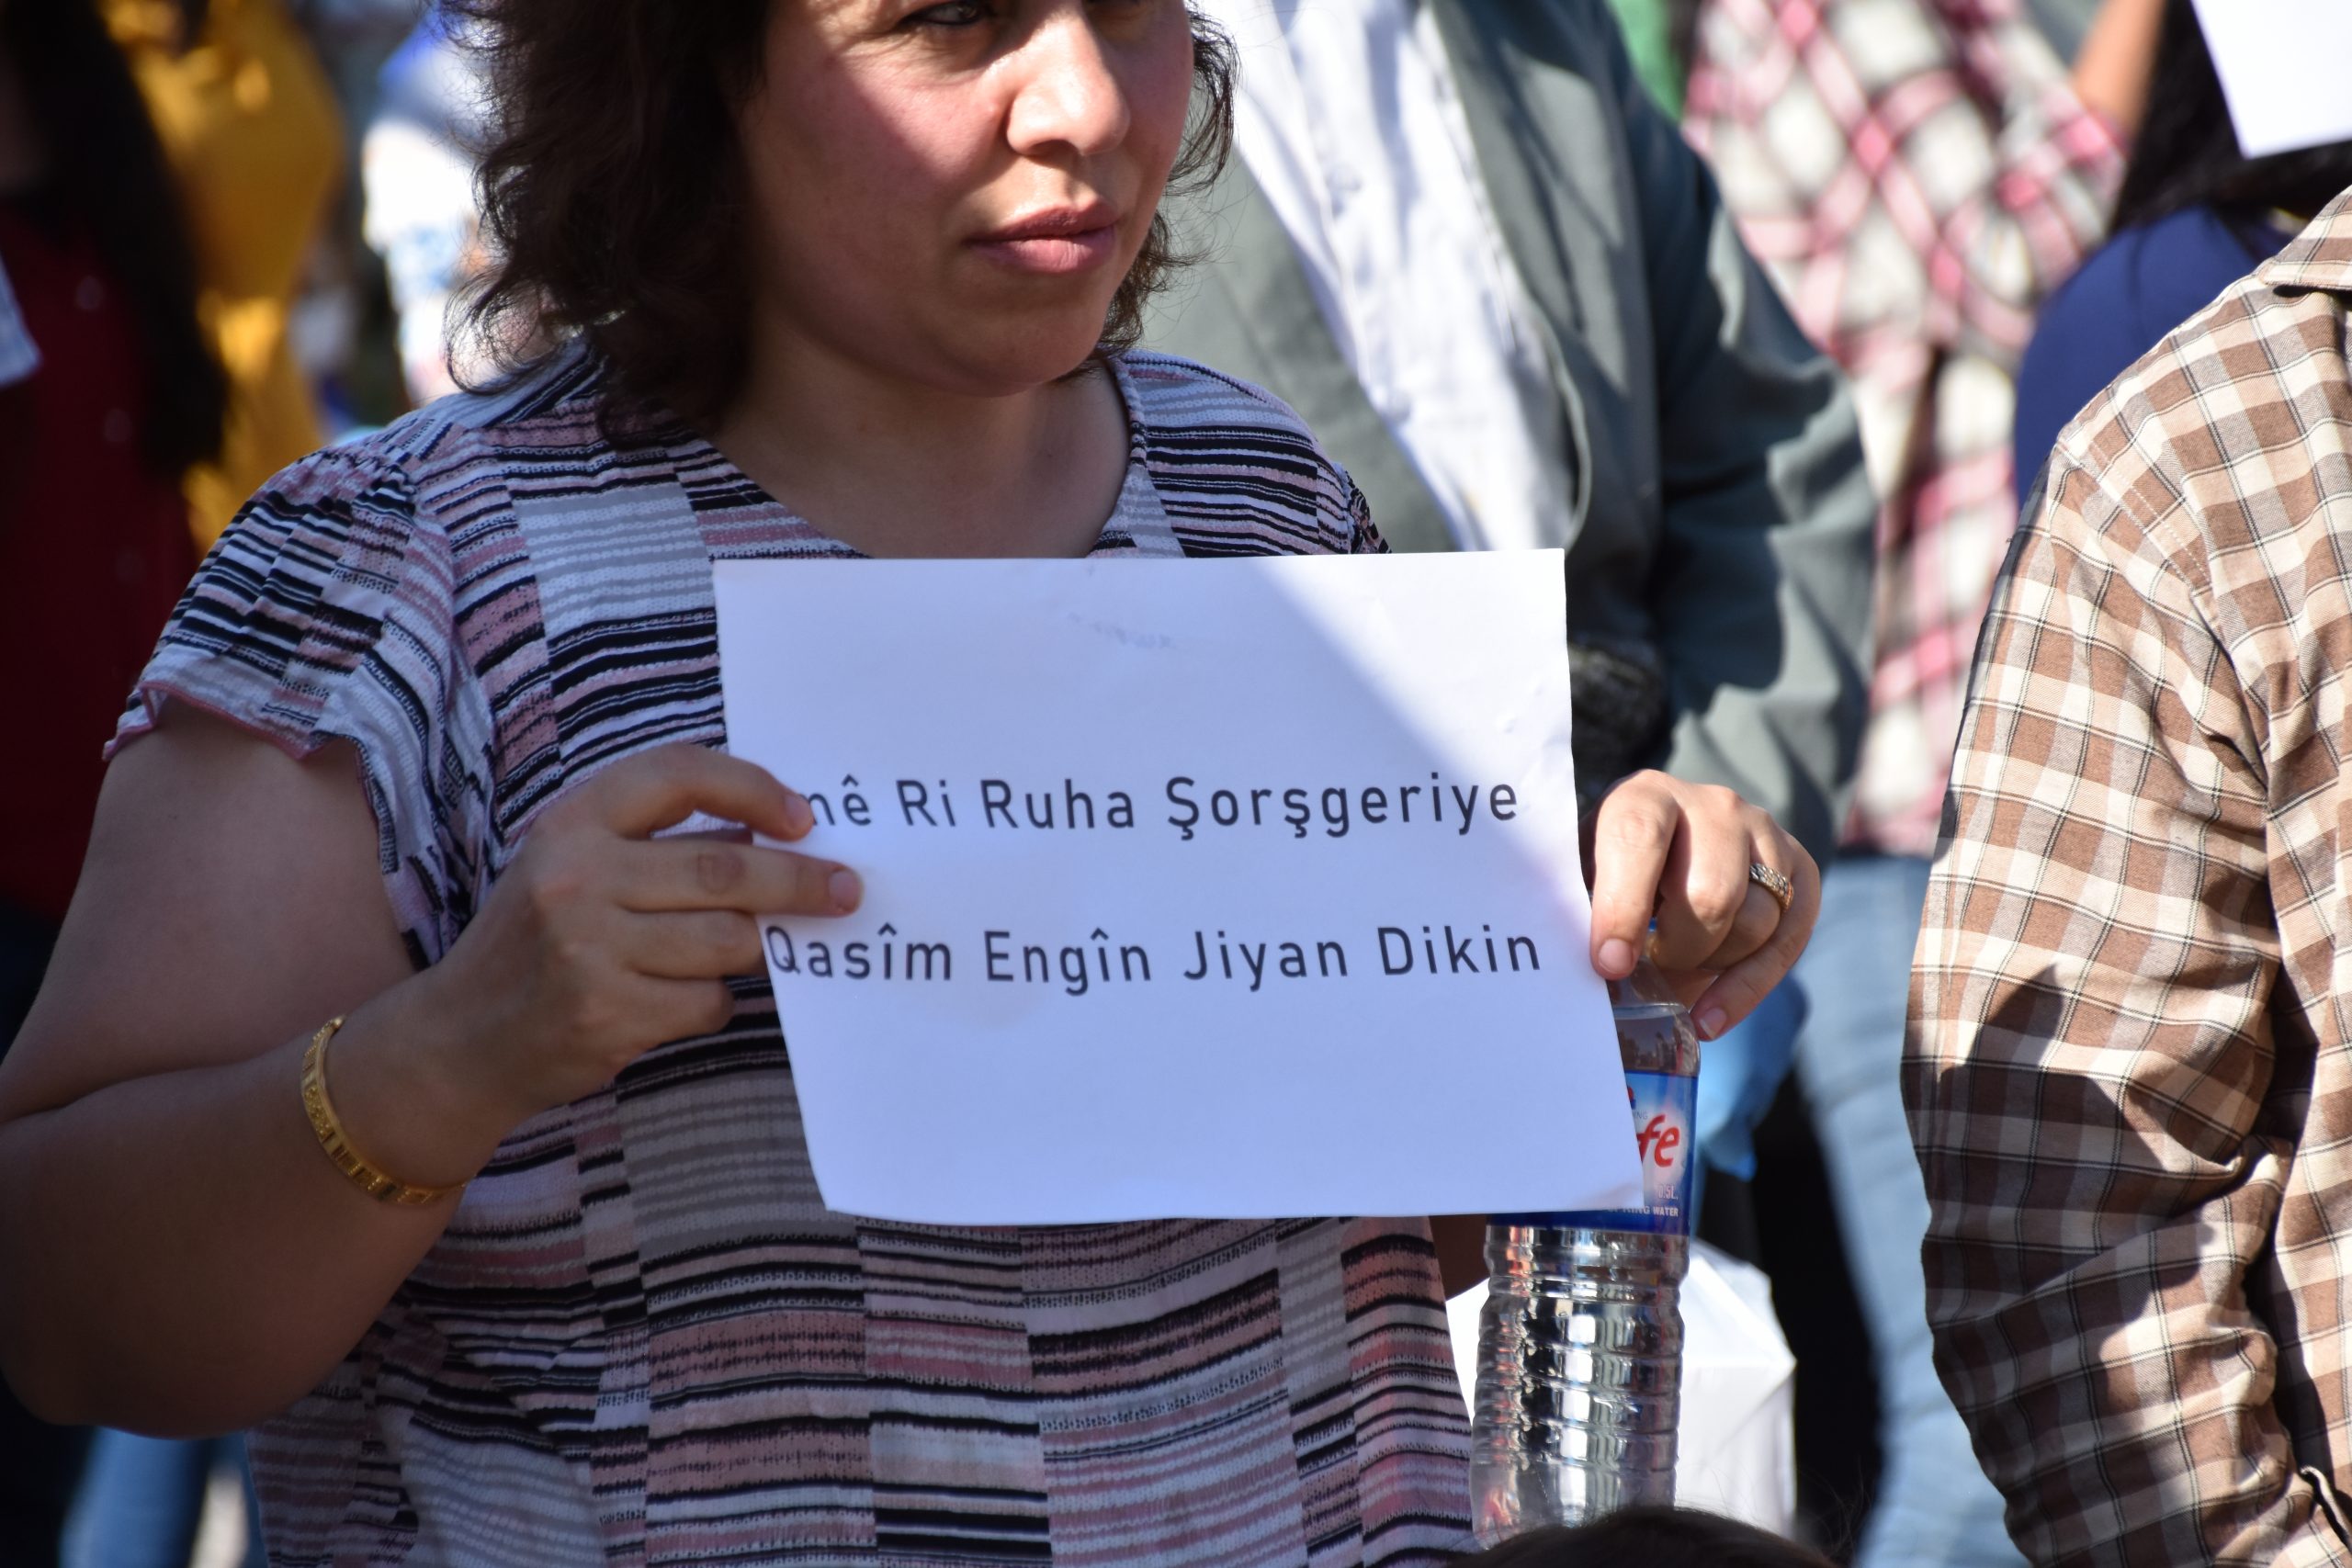 Ri Ruha Şorşgeriye
Qasîm Engîn Jiyan Dikin
WATER